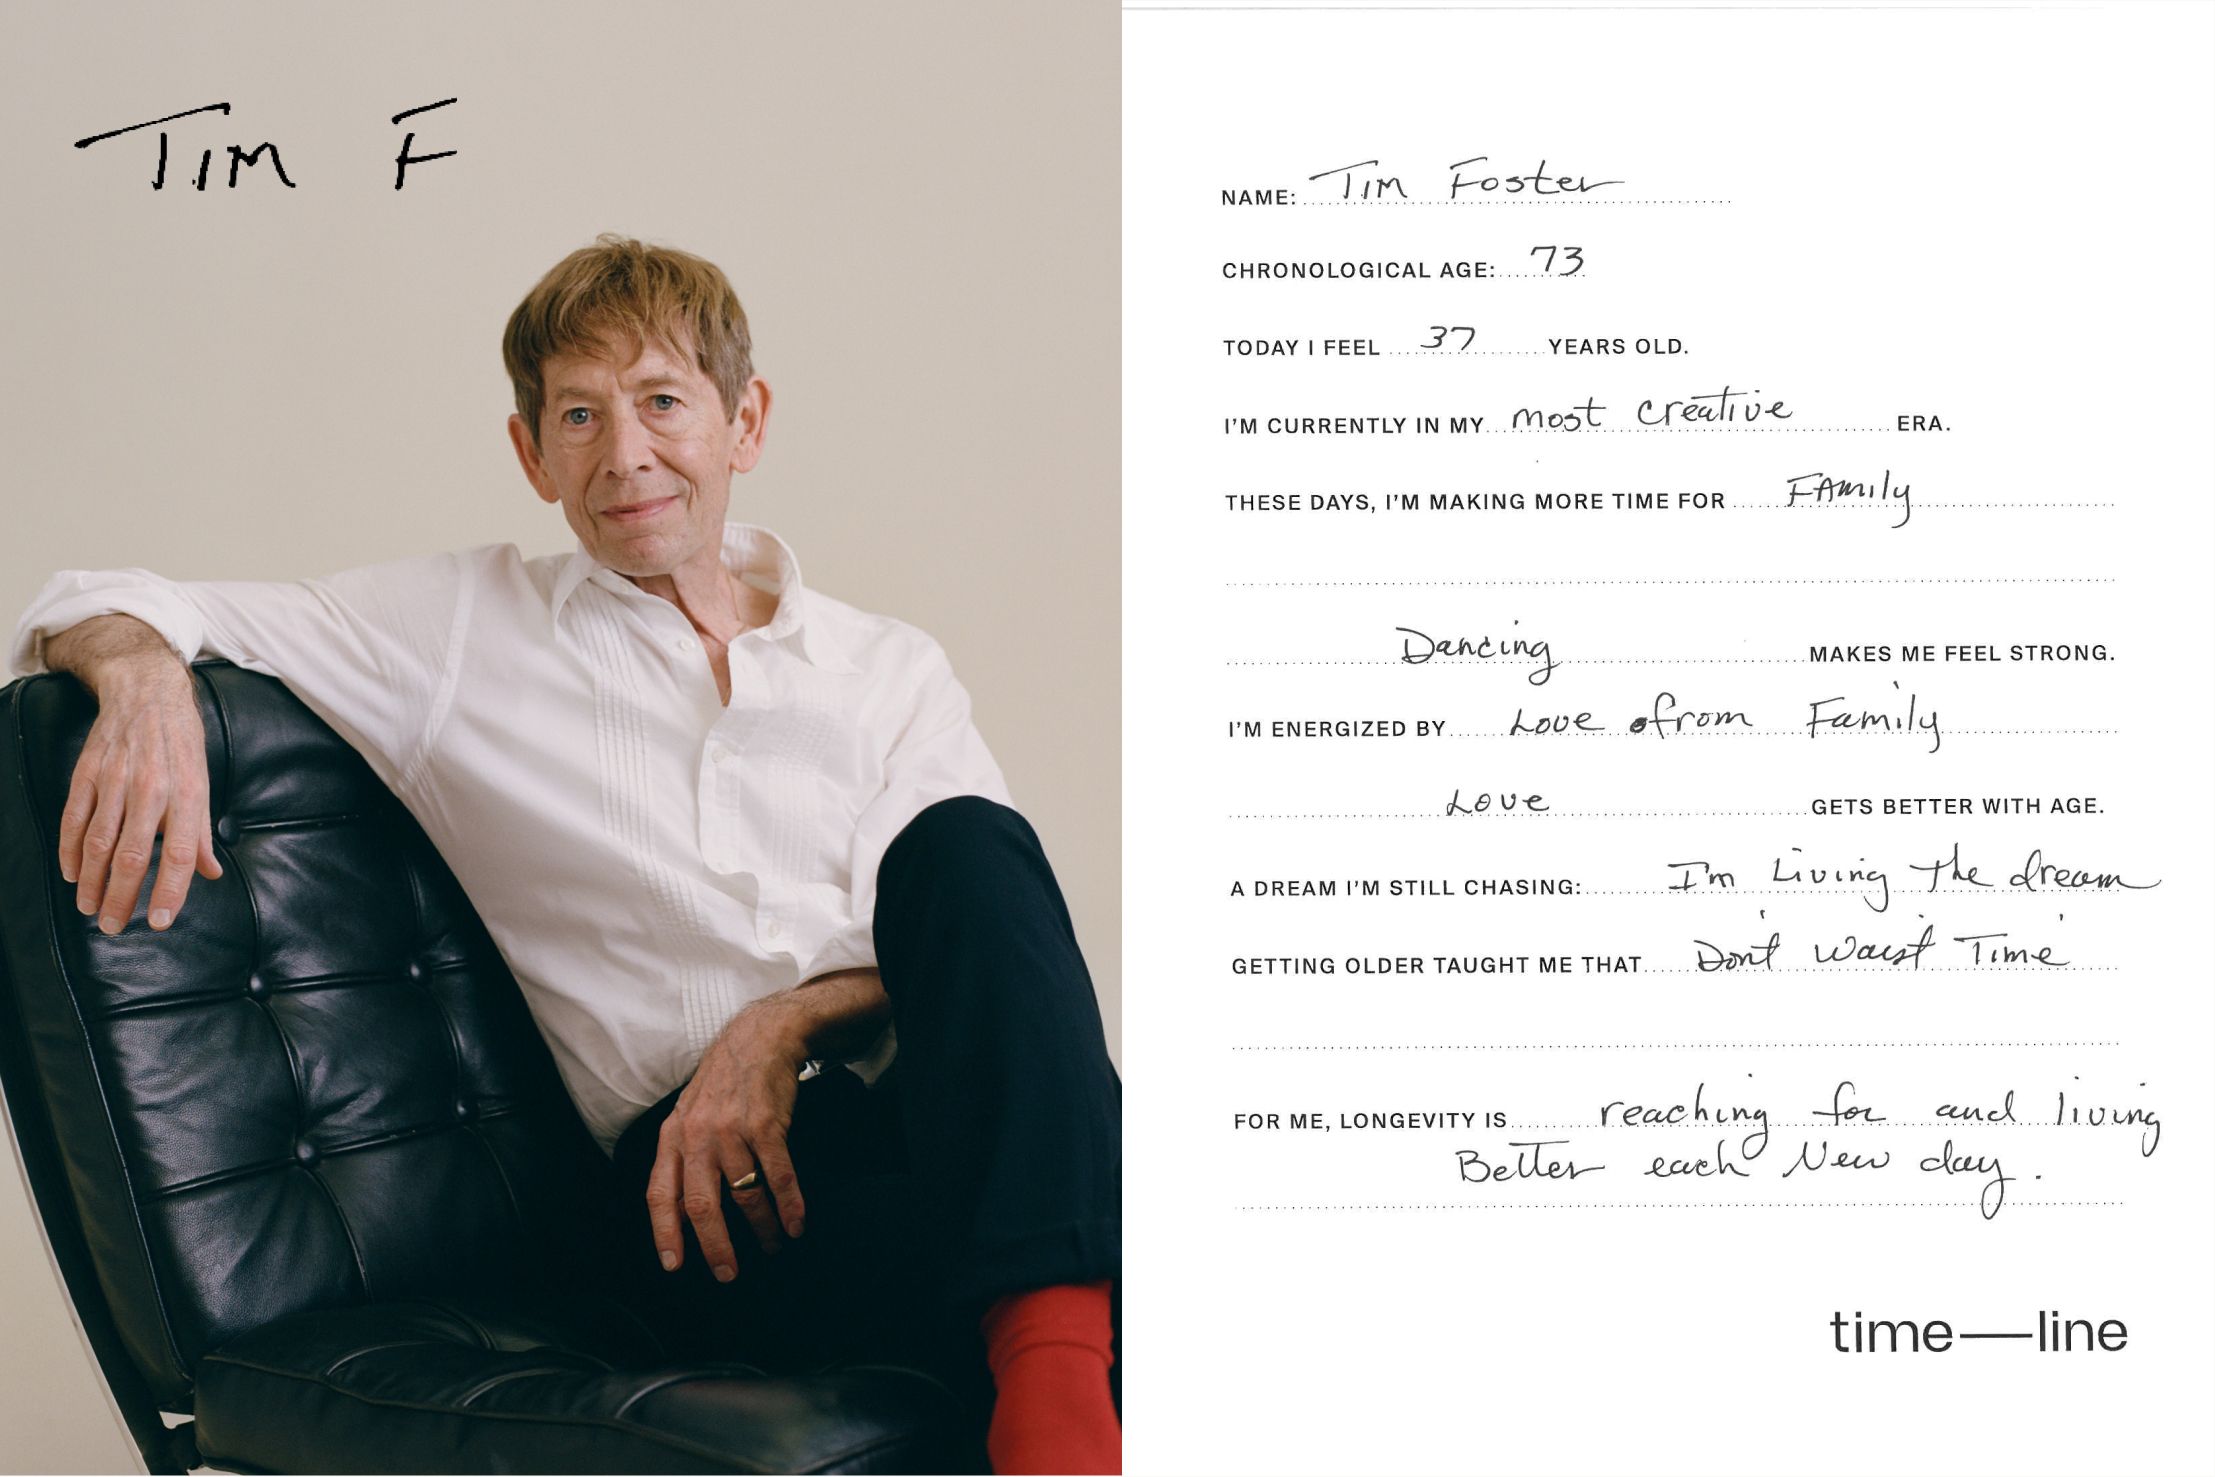 Tim F
NAME: Tim Foster
CHRONOLOGICAL AGE: 73
TODAY I FEEL 37 YEARS OLD.
I'M CURRENTLY IN MY most creative ERA.
THESE DAYS, I'M MAKING MORE TIME FOR FAmily
Dancing MAKES ME FEEL STRONG.
I'M ENERGIZED BY Love from Family
Love GETS BETTER WITH AGE.
A DREAM I'M STILL CHASING: I'm Living The dream
GETTING OLDER TAUGHT ME THAT Don't Waist Time
FOR ME, LONGEVITY IS reaching for and living
Better each New day.
time—line